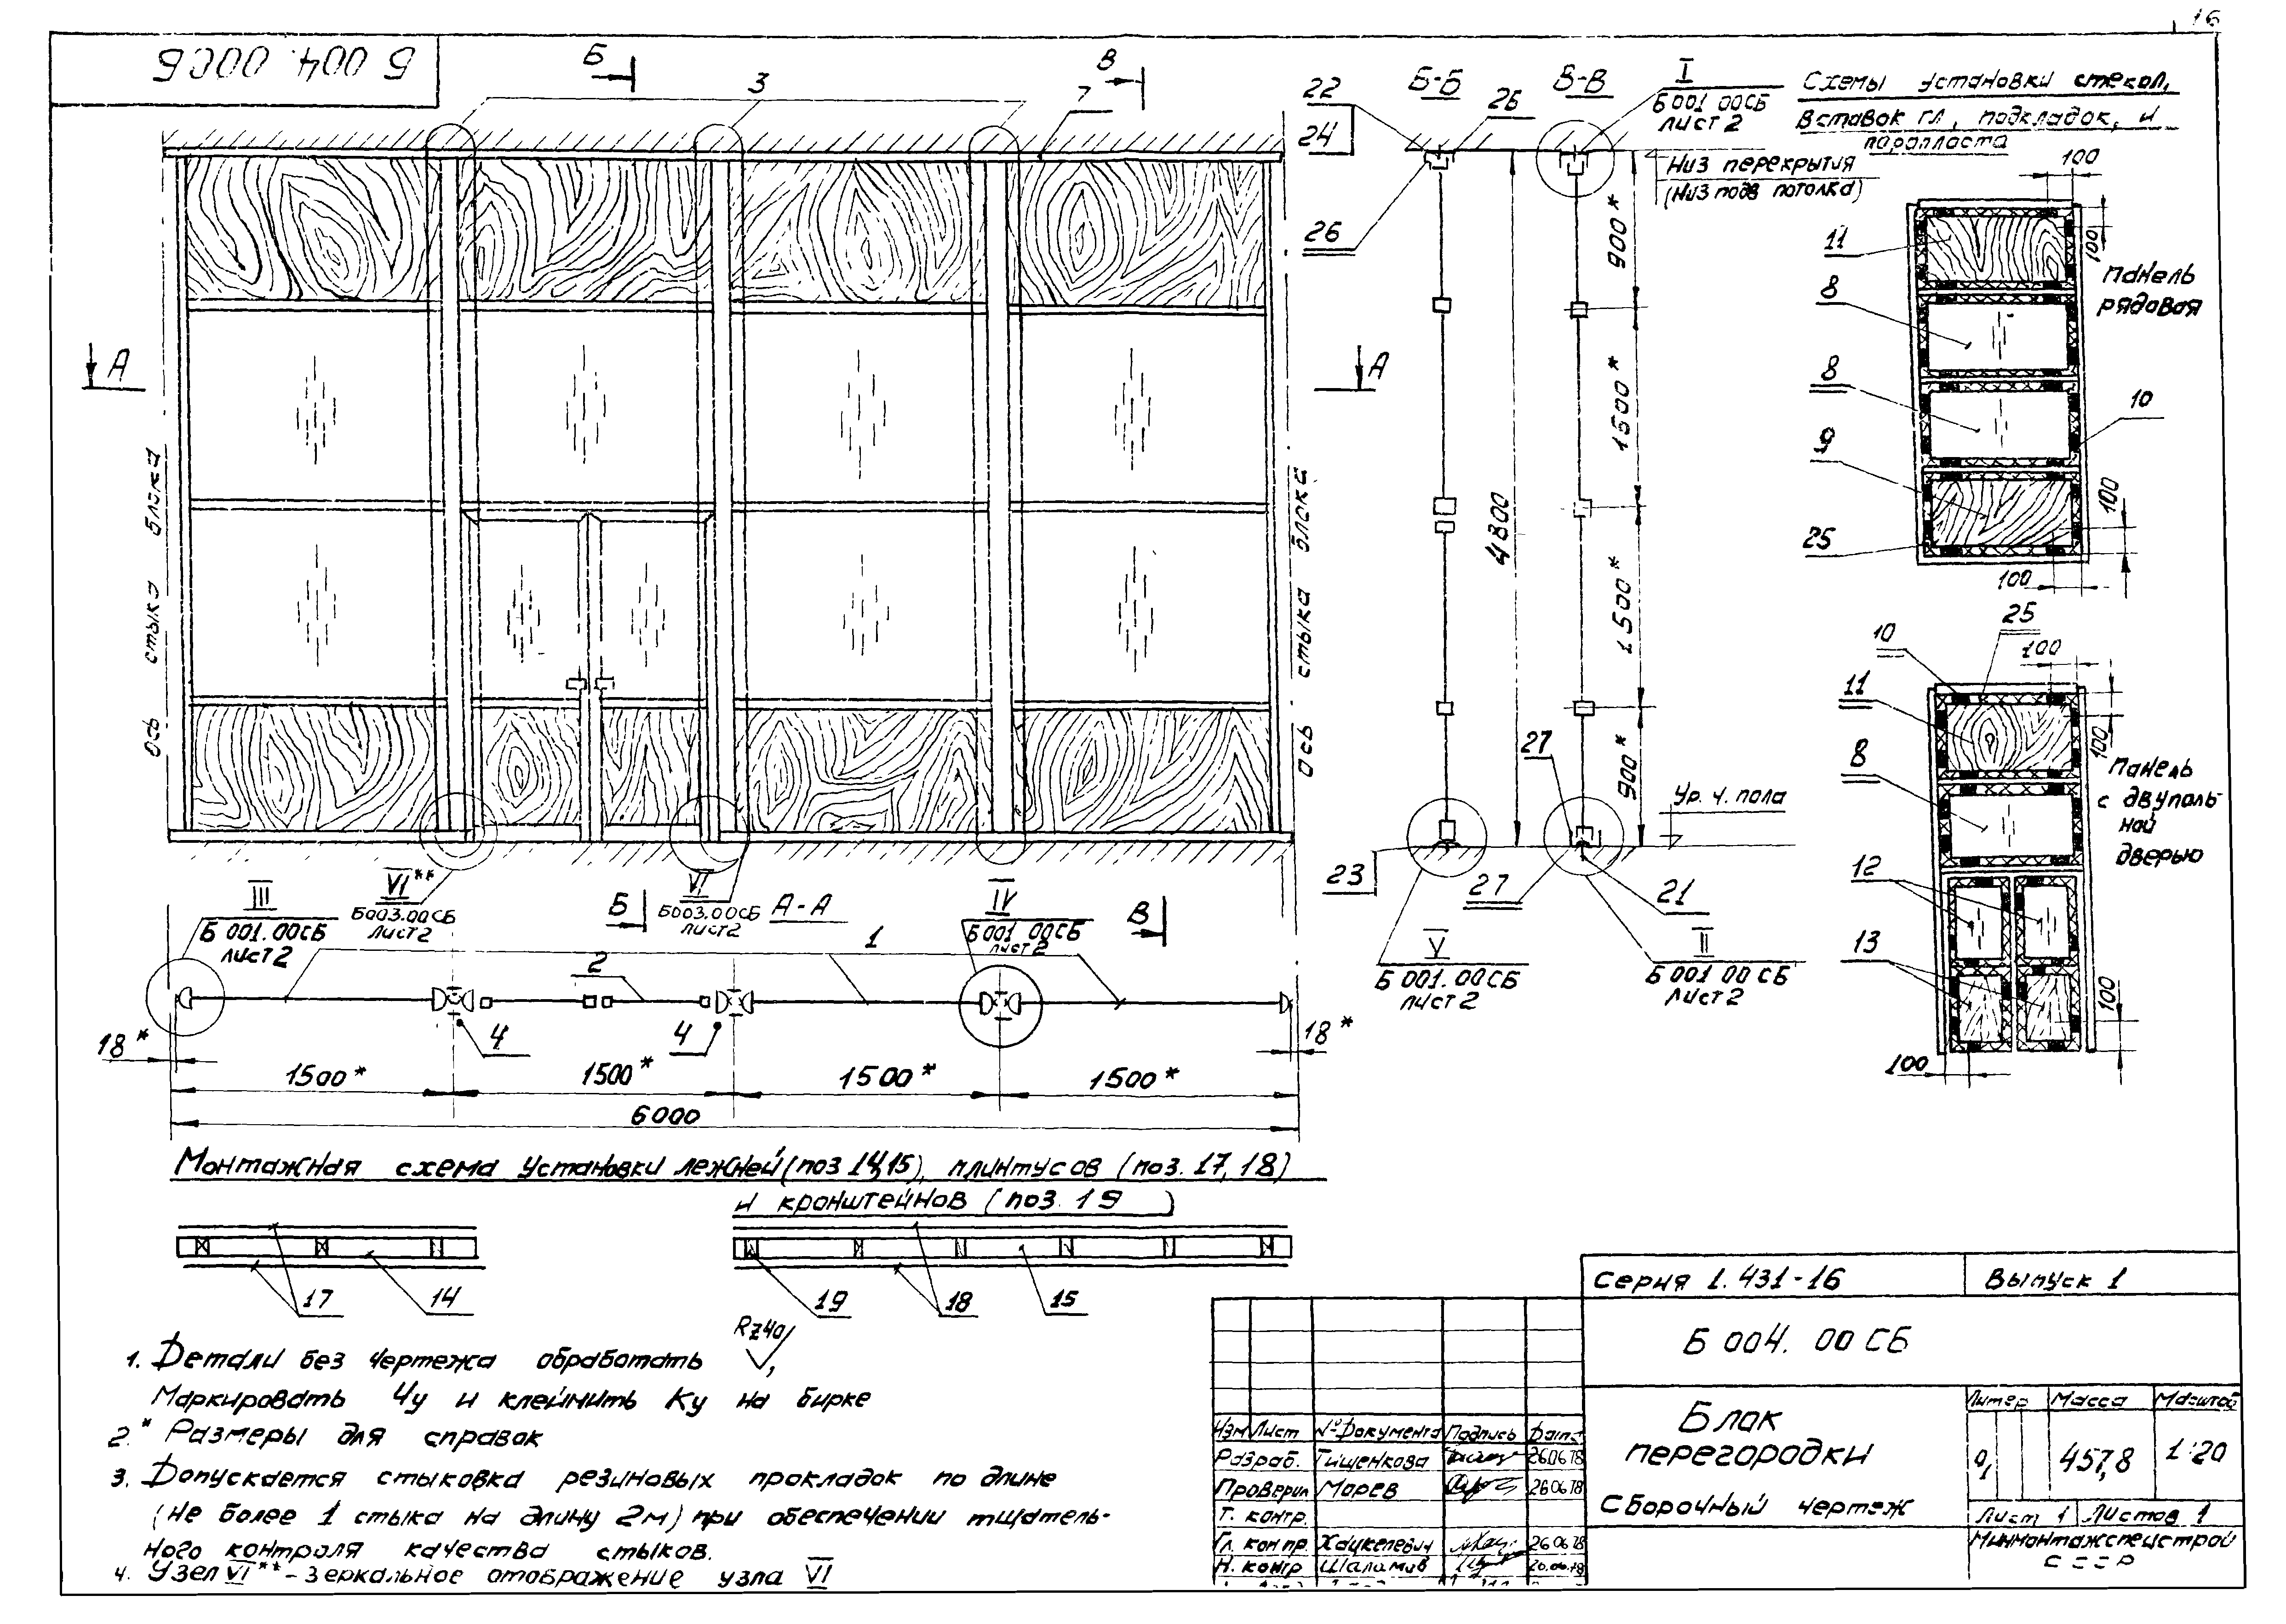 16
Б 004. 00СБ
Б
3
7
В
А
А
Ось стыка блока
Ось стыка блока
III
Б 001. 00СБ
лист 2
VI**
Б003.00СБ
лист 2
Б
VI
Б003.00СБ
лист 2
А-А
IV
Б001 00СБ
лист 2
В
1
2
4
4
18*
18*
1500*
1500*
1500*
1500*
6000
Б-Б
В-В
22
24
26
26
I
Б 001 00СБ
лист 2
Низ перекрытия
(Низ подв потолка)
900*
1500*
1500*
900*
4800
27
Ур. ч. пола
23
27
21
V
Б 001. 00СБ
лист 2
II
Б 001 00 СБ
лист 2
Схемы установки стекол,
вставок гл, подкладок, и
паропласта
100
100
11
8
8
9
10
25
100
100
Панель
рядовая
10
25
100
11
100
8
12
13
100
100
Панель
с двуполь-
ной
дверью
Монтажная схема установки лежней (поз 14,15), плинтусов (поз. 17, 18)
и кронштейнов (поз. 19 )
17
14
19
18
15
1. Детали без чертежа обработать Rz40,
Маркировать Чу и клеймить Ку на бирке
2.* Размеры для справок
3. Допускается стыковка резиновых прокладок по длине
(не более 1 стыка на длину 2м) при обеспечении тщатель-
ного контроля качества стыков.
4. Узел VI** - зеркальное отображение узла VI
Серия 1. 431-16
Выпуск 1
Б 004. 00 СБ
Блок
перегородки
Сборочный чертеж
Литер Масса Масштаб
457,8 1:20
Лист 1 Листов 1
Минмонтажспецстрой
СССР
Изм Лист № Документа Подпись Дата
Разраб. Тищенкова 26.06.78
Проверил Морев 26.06.78
Т. контр.
Гл. констр. Хацкелевич 26.06.78
Н. контр Шаламов